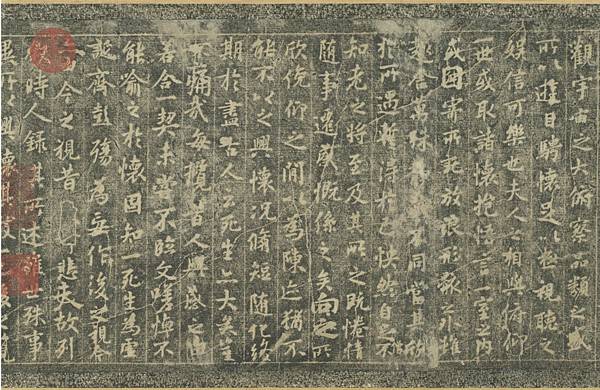 觀宇宙之大俯察品類之盛
所以遊目騁懷足以極視聽之
娛信可樂也夫人之相與俯仰
一世或取諸懷抱悟言一室之內
或因寄所託放浪形骸之外雖
趣舍萬殊不同當其欣
於所遇暫得於己快然自足不
知老之將至及其所之既惓情
隨事遷感慨係之矣向之所
欣俛仰之間以為陳迹猶不
能不以之興懷況脩短隨化終
期於盡古人云死生亦大矣豈
不痛哉每攬昔人興感之由
若合一契未嘗不臨文嗟悼不
能喻之於懷固知一死生為虛
誕齊彭殤為妄作後之視今
今之視昔悲夫故列
敘時人錄其所述雖世殊事
異所以興懷其致後之覽